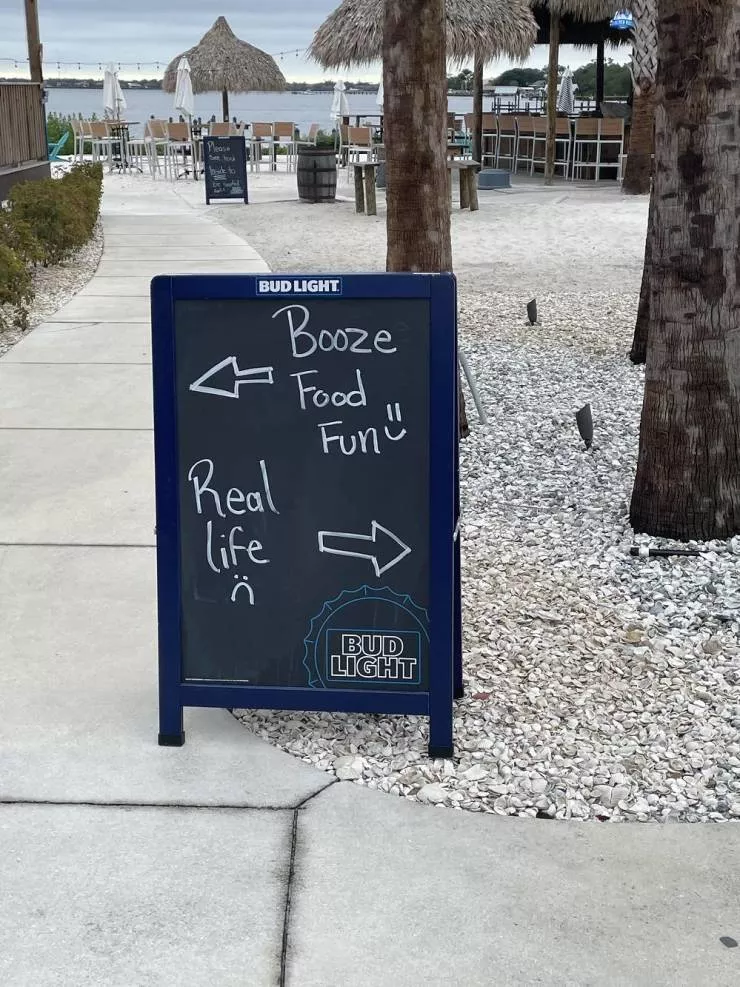 BUD LIGHT
Booze
Food
Fun
Real
life
BUD
LIGHT
Please